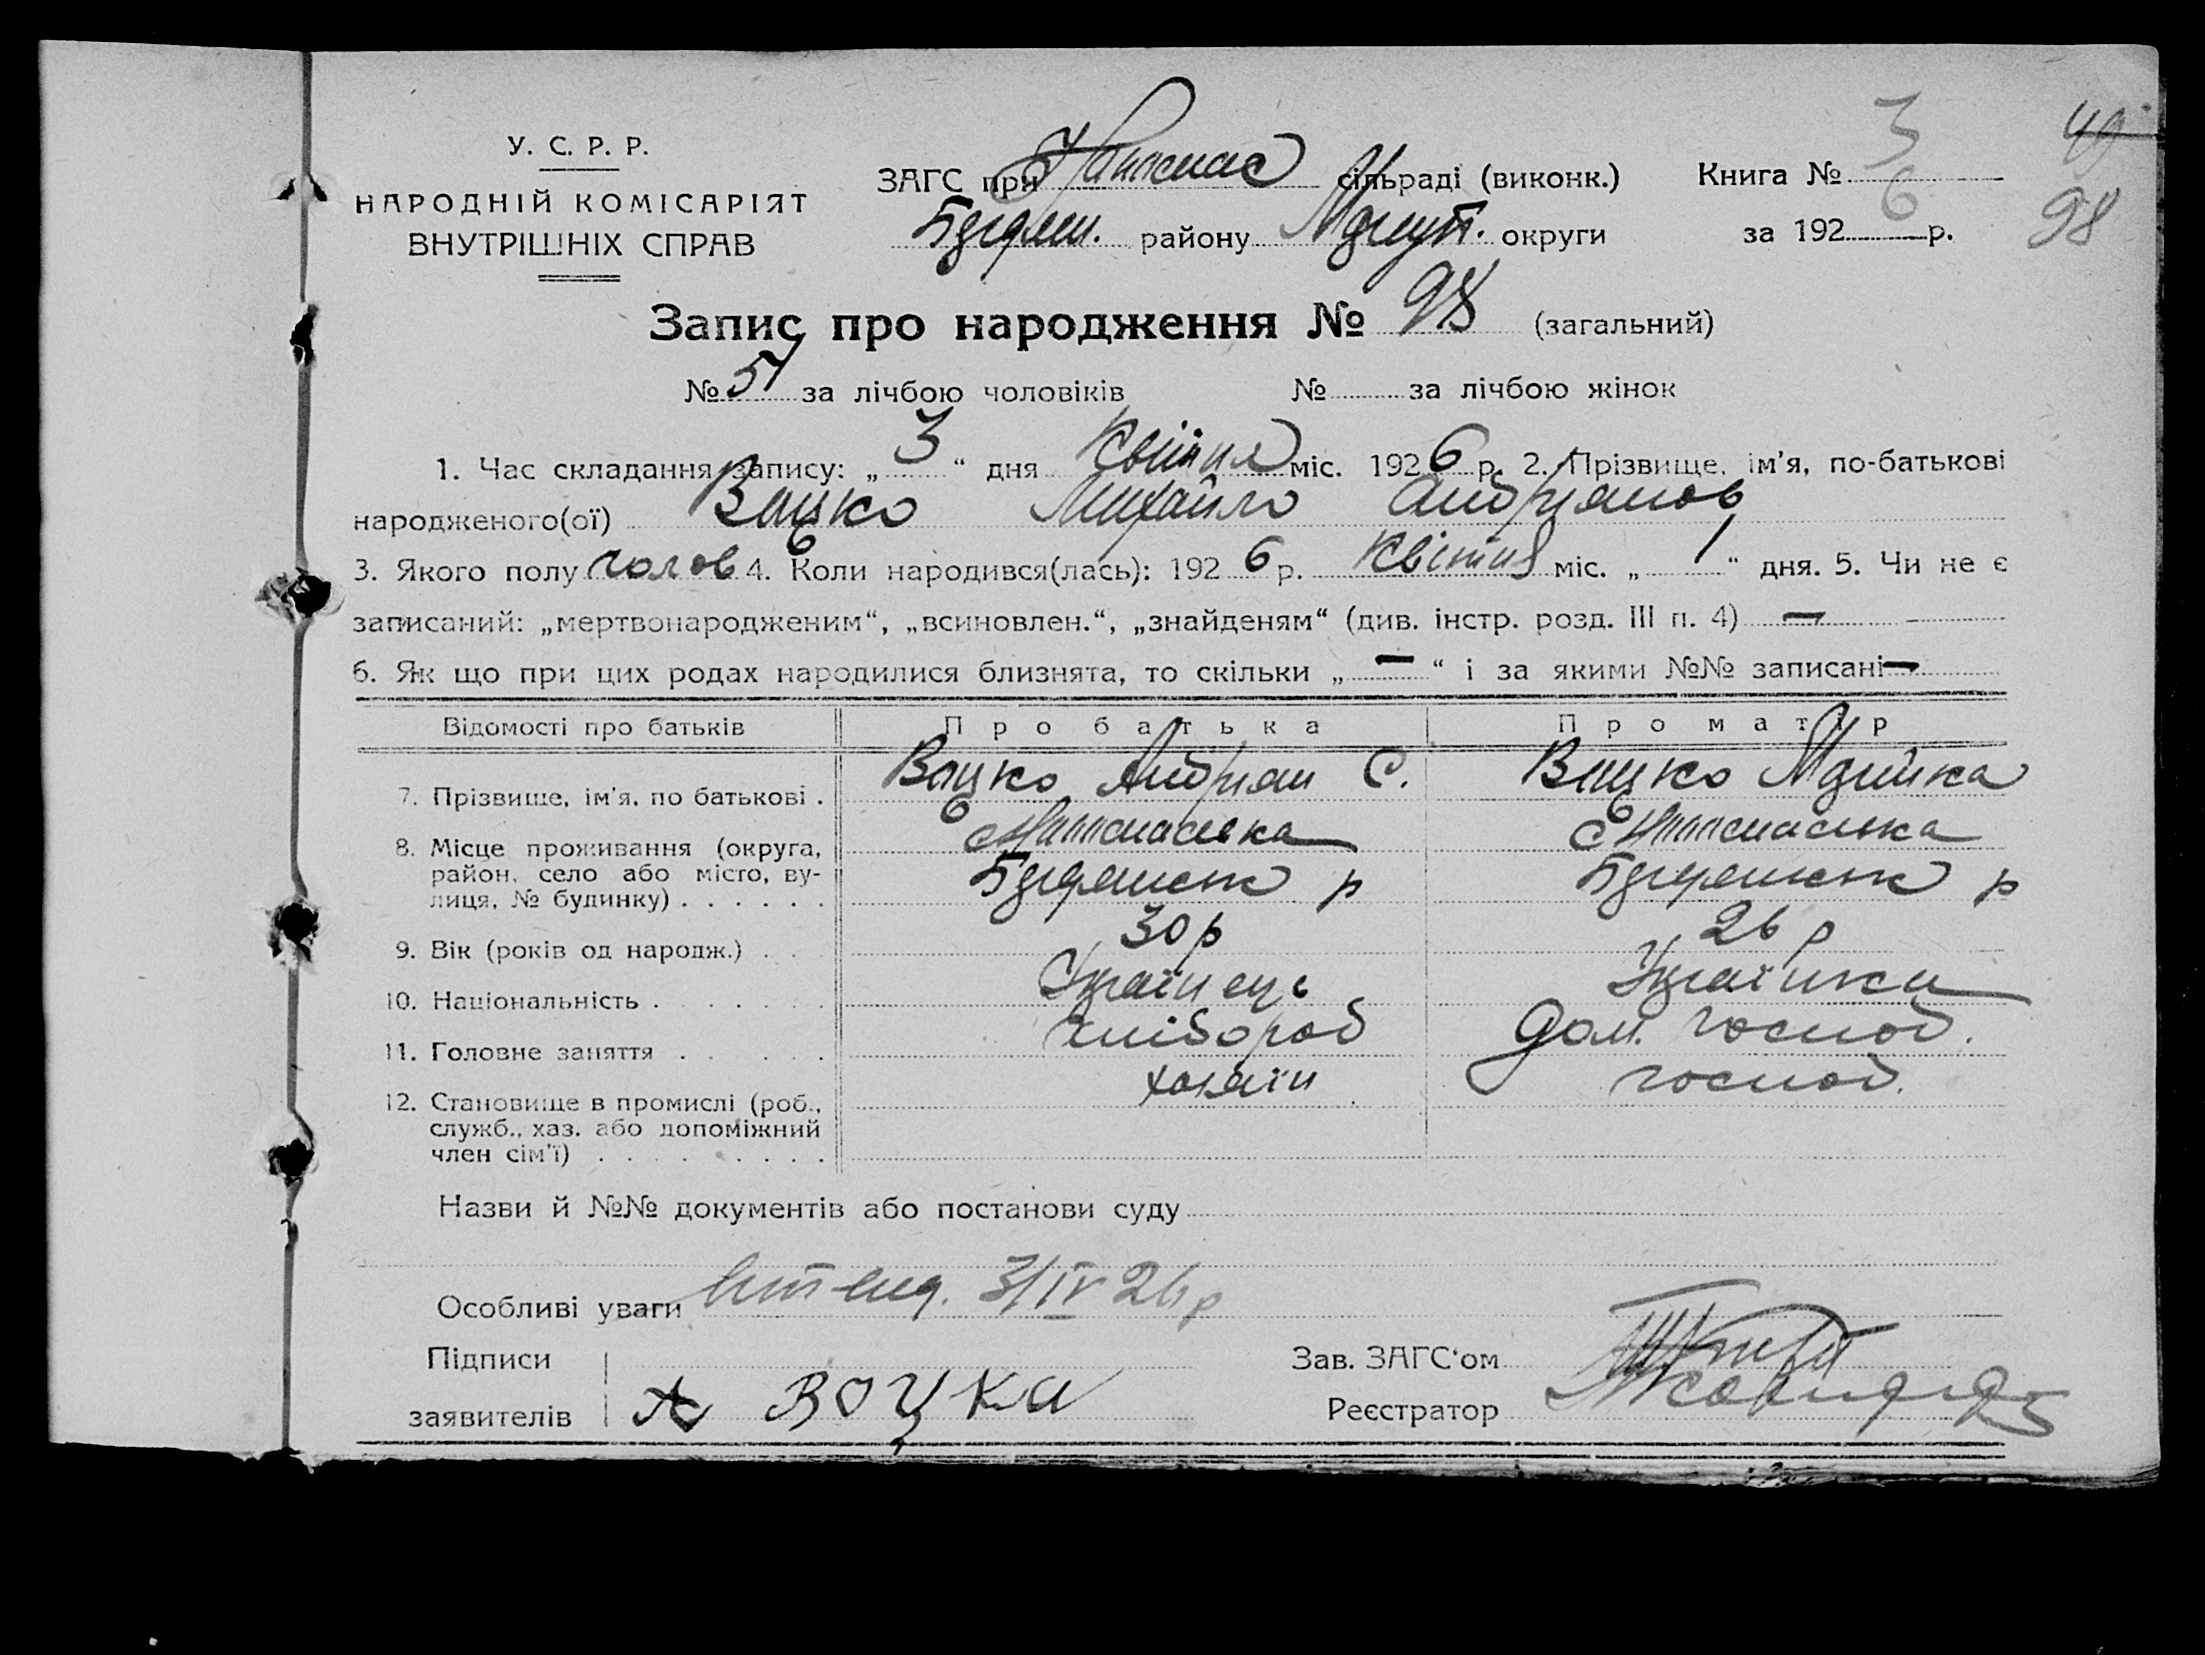 У. С. Р. Р.
НАРОДНІЙ КОМІСАРІЯТ
ВНУТРІШНІХ СПРАВ
ЗАГС при сільраді (виконк.) Книга № 3 49
району округи за 192 6 р. 98
Запис про народження № 98 (загальний)
№ 51 за лічбою чоловіків № за лічбою жінок
1. Час складання запису: „ 3 “ дня Квітня міс. 192 6 р. 2. Прізвище, ім'я, по-батькові
народженого(ої) Воцко Михайло Андріянов
3. Якого полу чолов 4. Коли народився(лась): 192 6 р. Квітня міс. „ 1 “ дня. 5. Чи не є
записаний: „мертвонародженим“, „всиновлен.“, „знайденям“ (див. інстр. розд. III п. 4) —
6. Як що при цих родах народилися близнята, то скільки „ — “ і за якими №№ записані —
Відомості про батьків Про батька Про матір
7. Прізвище, ім'я, по батькові . Воцко Андріян С. Воцко
8. Місце проживання (округа,
район, село або місто, ву-
лиця, № будинку) . . . . . . р р
9. Вік (років од народж.) . . . 30 р 26 р
10. Національність . . . . . . Українець Українка
11. Головне заняття . . . . . хлібороб Дом. господ.
12. Становище в промислі (роб., хазяїн господ.
служб., хаз. або допоміжний
член сім'ї) . . . . . . . . .
Назви й №№ документів або постанови суду
Особливі уваги 3/IV 26 р
Підписи Зав. ЗАГС'ом
заявителів А Воцко Реєстратор